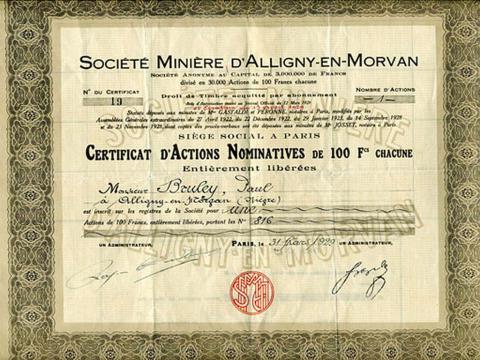 SOCIÉTÉ MINIÈRE D'ALLIGNY-EN-MORVAN
SOCIÉTÉ ANONYME AU CAPITAL DE 3.000.000 DE FRANCS
divisé en 30.000 Actions de 100 Francs chacune
N° DU CERTIFICAT
NOMBRE D'ACTIONS
19
1
Droit de Timbre acquitté par abonnement
Avis d'Autorisation inséré au Journal Officiel du 12 Mars 1926
Statuts déposés aux minutes de Me GASTALDI et PERONNE, notaires à Paris, modifiés par les
Assemblées Générales extraordinaires des 27 Avril 1922, du 22 Décembre 1922, du 29 Janvier 1923, du 14 Septembre 1928
et du 23 Novembre 1928, dont copies des procès-verbaux ont été déposées aux minutes de Me JOSSET, notaire à Paris.
SIÈGE SOCIAL A PARIS
CERTIFICAT D'ACTIONS NOMINATIVES DE 100 Fcs CHACUNE
Entièrement libérées
Monsieur Bruley, Paul
à Alligny-en-Morvan (Nièvre)
est inscrit sur les registres de la Société pour une
Actions de 100 Francs, entièrement libérées, portant les Nos 816
UN ADMINISTRATEUR,
PARIS, le 31 Mars 1929
UN ADMINISTRATEUR,
ALLIGNY-EN-MORVAN